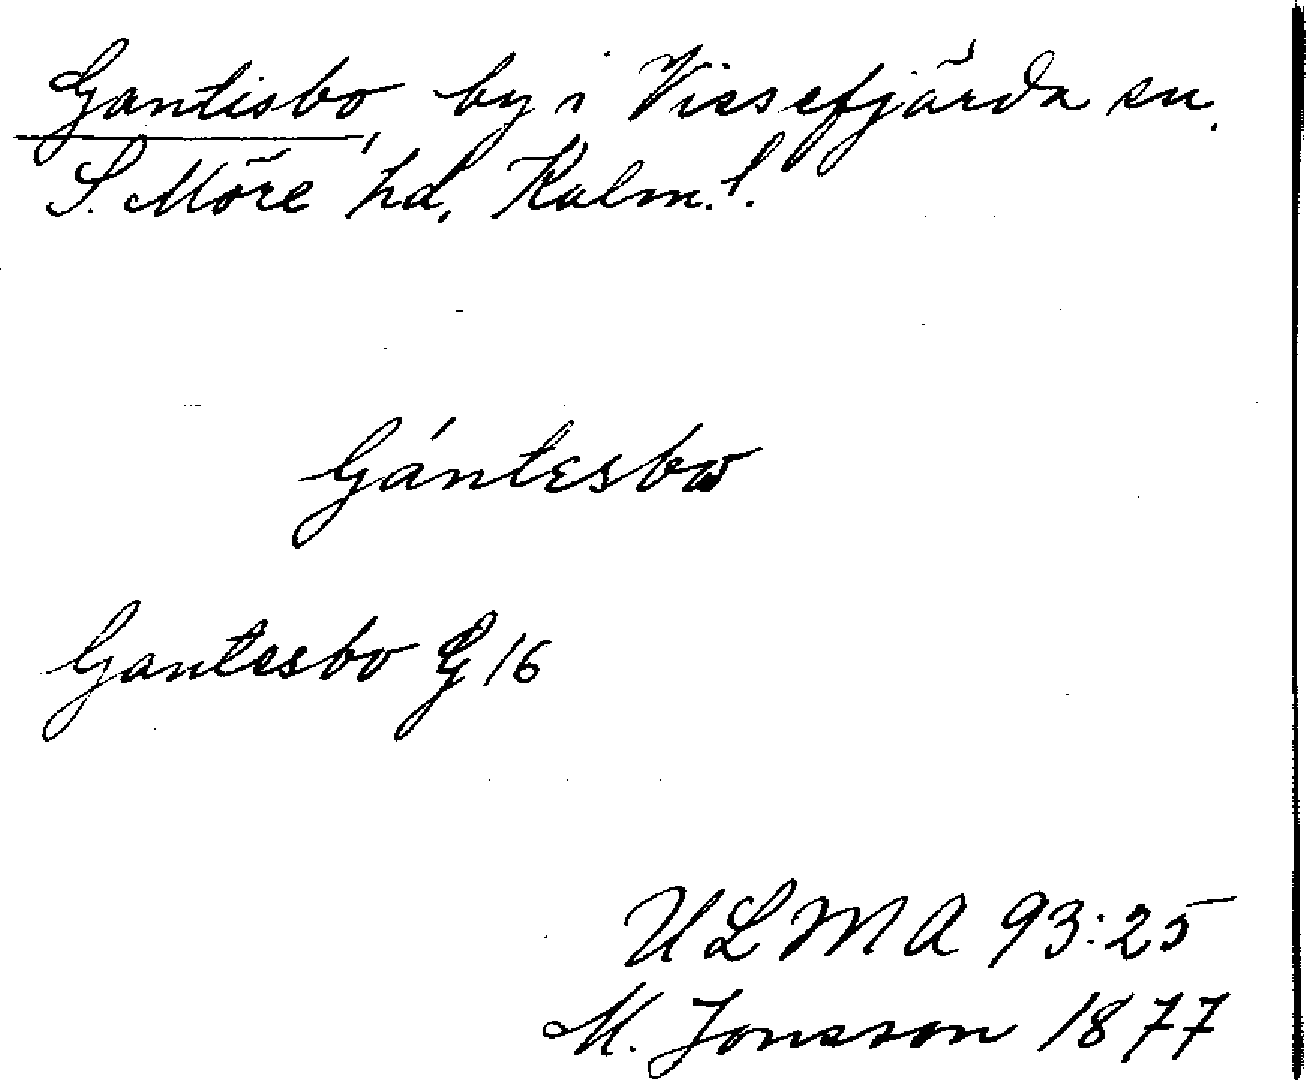 Gantisbo, by i Vissefjärda sn.
S. Möre hd, Kalm. l.
Gántesbω
Gantesbo G 16
ULMA 93:25
M. Jonsson 1877